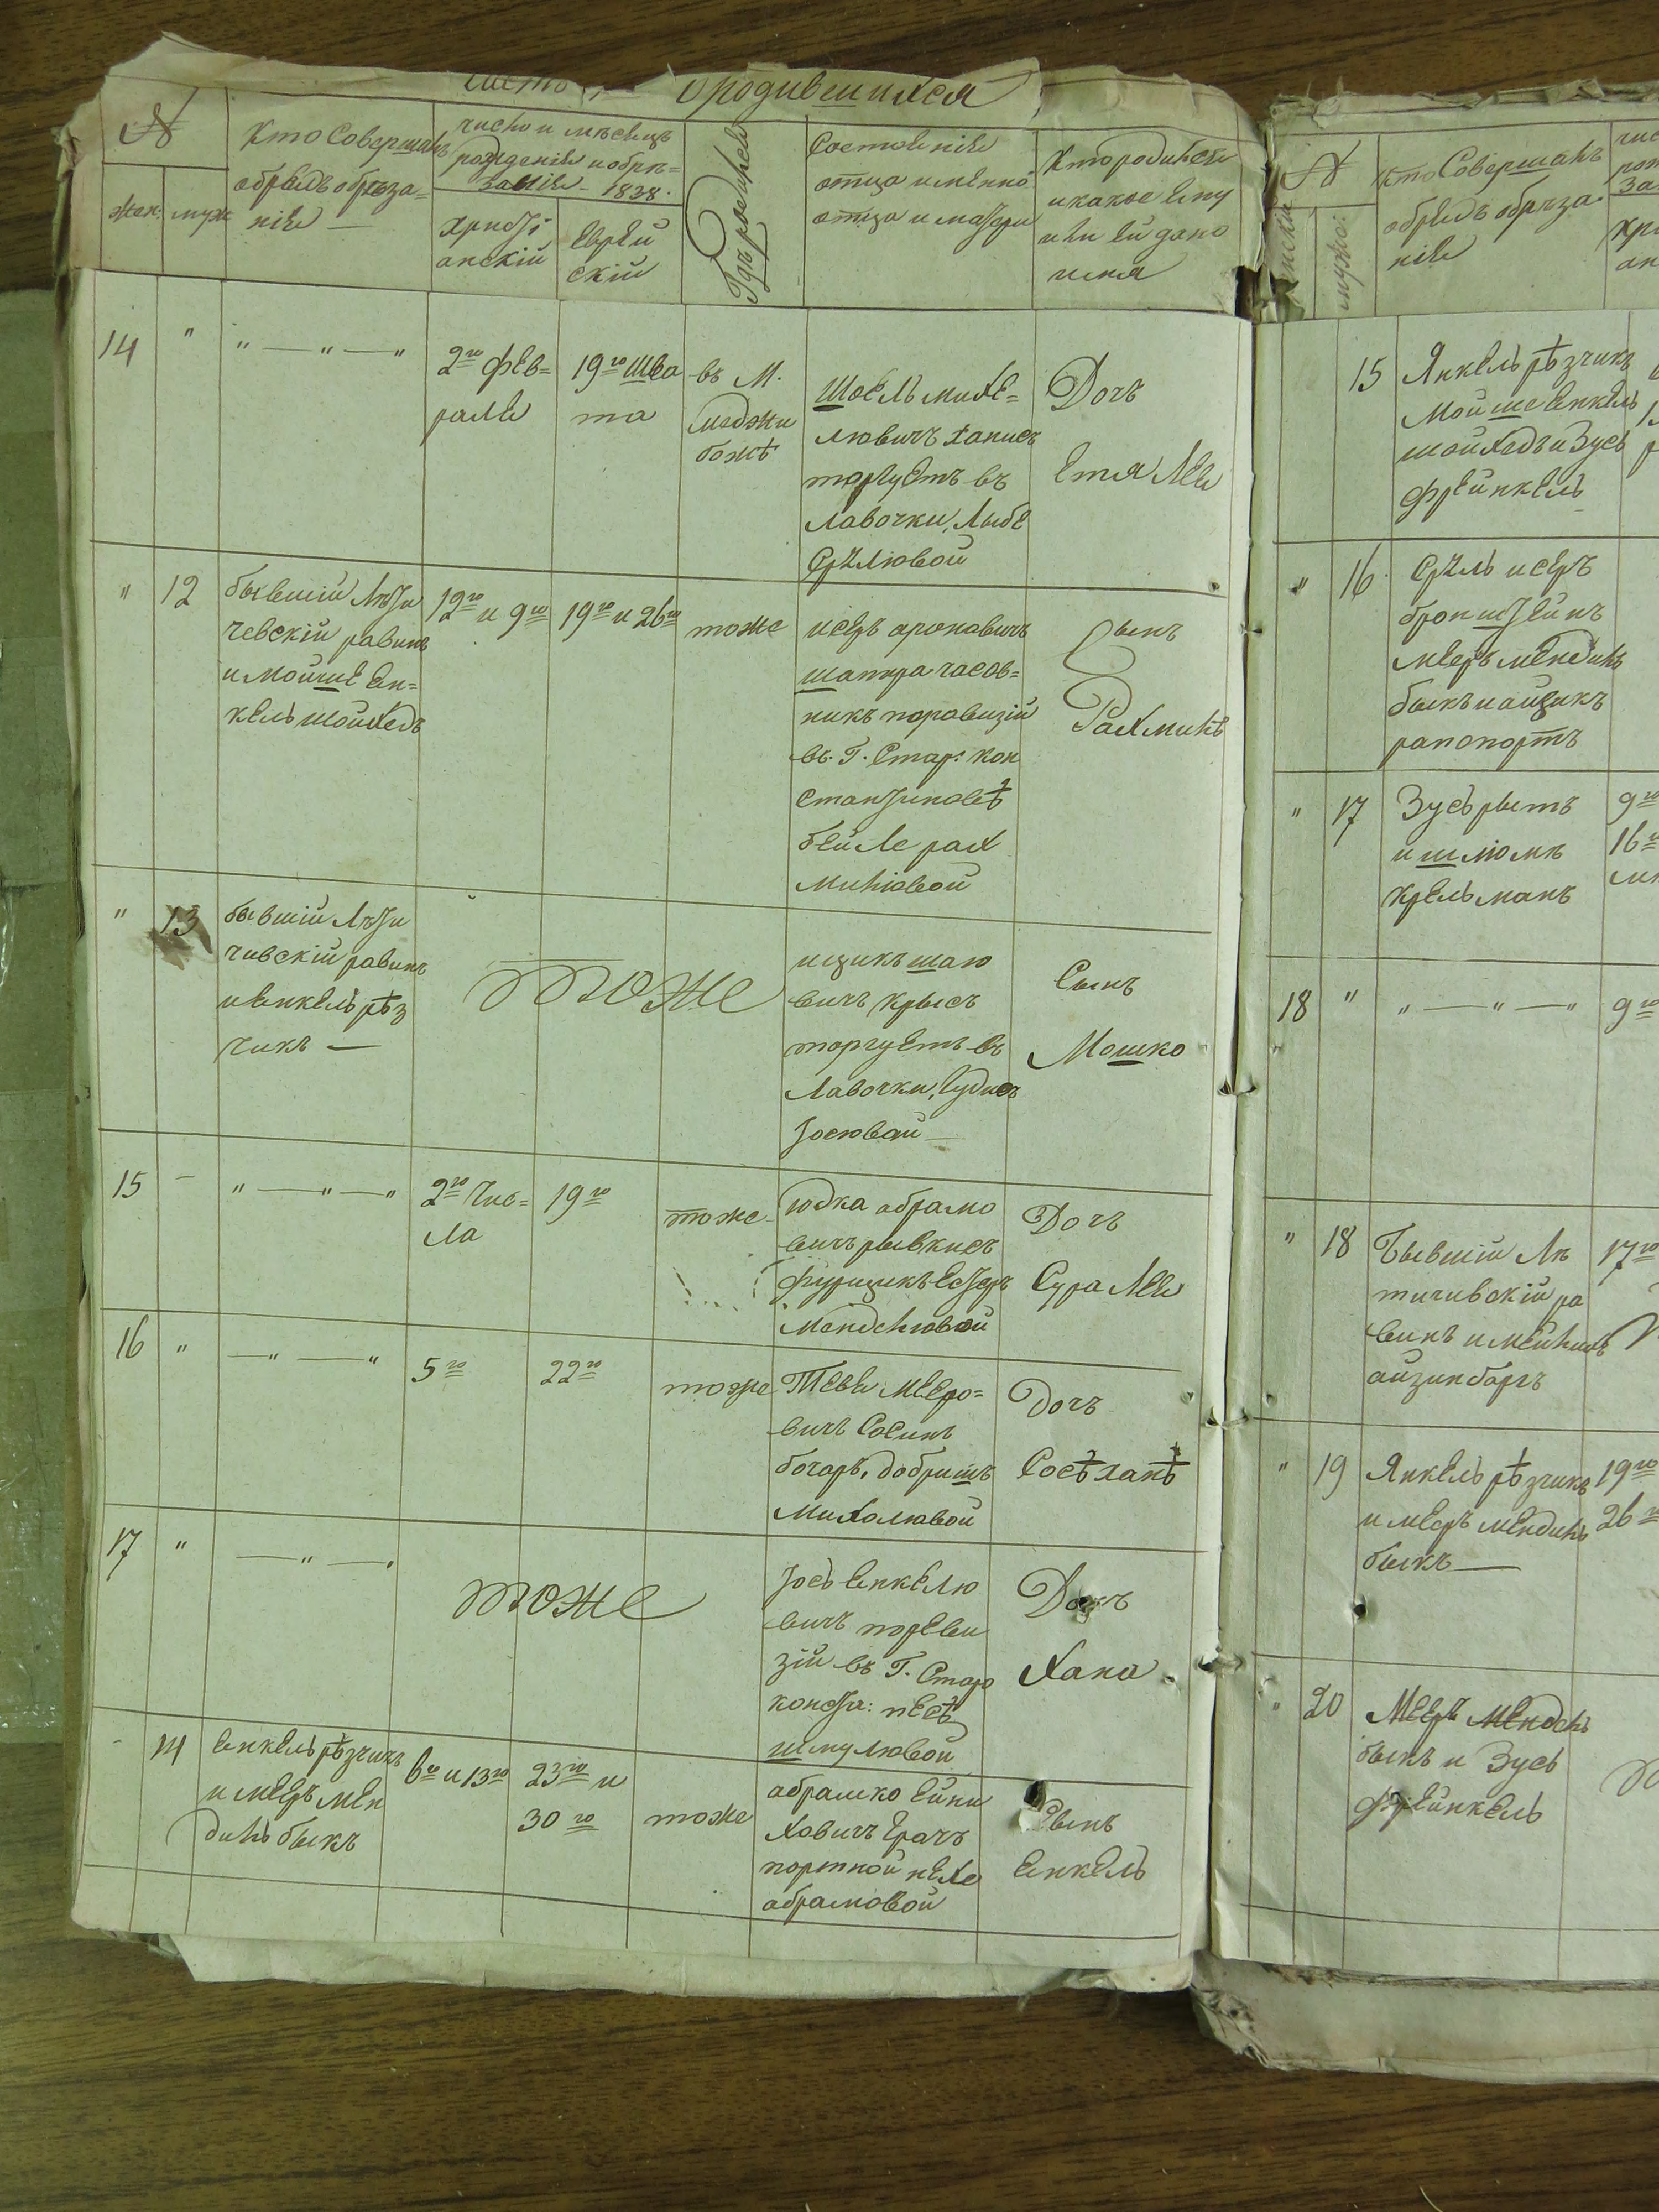 о родившихся
№
жен. муж
Кто Совершалъ
обрядъ обреза=
нія —
число и месяцъ
рожденія и обре=
занія – 1838.
христі
анскій
еврей
скій
Гдъ родился
Состояніе
отца имяно
отца и матери
Кто родился
и какое ему
или ей дано
имя
14 " " — " — "
2го Фев=
раля
19го Шва
та
въ М.
меджи
божѣ
Шоель михе=
лювичъ ханисъ
торгуетъ въ
лавочки, Лыбе
Срулювой
Дочь
Етя Лея
" 12
бывшій Лети
чевскій равинъ
и мойше ян=
кель шойхедъ
12го и 9го
19го и 26го
тоже
исеръ ароновичъ
шапира часов=
никъ поравизій
въ Г. Старо: кон
стантиновѣ
бейле рах
мильовой
Сынъ
Рахмиль
" 13
бывшій Лети
чивскій равинъ
и янкель рѣз
чикъ —
тоже
ицикъ шаю
вичъ крысъ
торгуетъ въ
лавочки, Гудисъ
Іосювай
Сынъ
Мошко
15 – " — " — "
2го Чис=
ла
19го
тоже
юдка абрамо
вичъ рывкисъ
фурщикъ Естеръ
Мендельовой
Дочь
Сура Лея
16 " — " — "
5го
22го
тоже
Тевя мееро=
вичъ Сосинъ
бочаръ, добришъ
Михалювой
Дочь
Сосѣ ханѣ
17 " — " —
тоже
Іось янкелю
вичъ пореви
зій въ Г. Старо
конст: песѣ
шмулювой
Дочь
Хана
14
янкель рѣзчикъ
и мееръ мен
диль быкъ
6го и 13го
23го и
30го
тоже
абрамко ейни
ховичъ Грачъ
портной нехе
абрамовой
Сынъ
янкель
№
мужс:
кто Совершалъ
обрядъ обреза
нія
15
Янкель рѣзчикъ
мойше янкель
шойхедъ и Зусь
френкель
" 16
Сруль исеръ
бронштейнъ
мееръ мендиль
быкъ и айзикъ
рапопортъ
" 17
Зусь рытъ
и шлюмъ
Крельманъ
9го
16го
18 " " — " — "
9го
" 18
Бывшій Ле
тичивскій ра
винъ и мейнихъ
айзинбаргъ
17го
" 19
Янкель рѣзчикъ
и мееръ мендиль
быкъ —
19го
26го
" 20
Мееръ Мендель
быкъ и Зусь
френкель